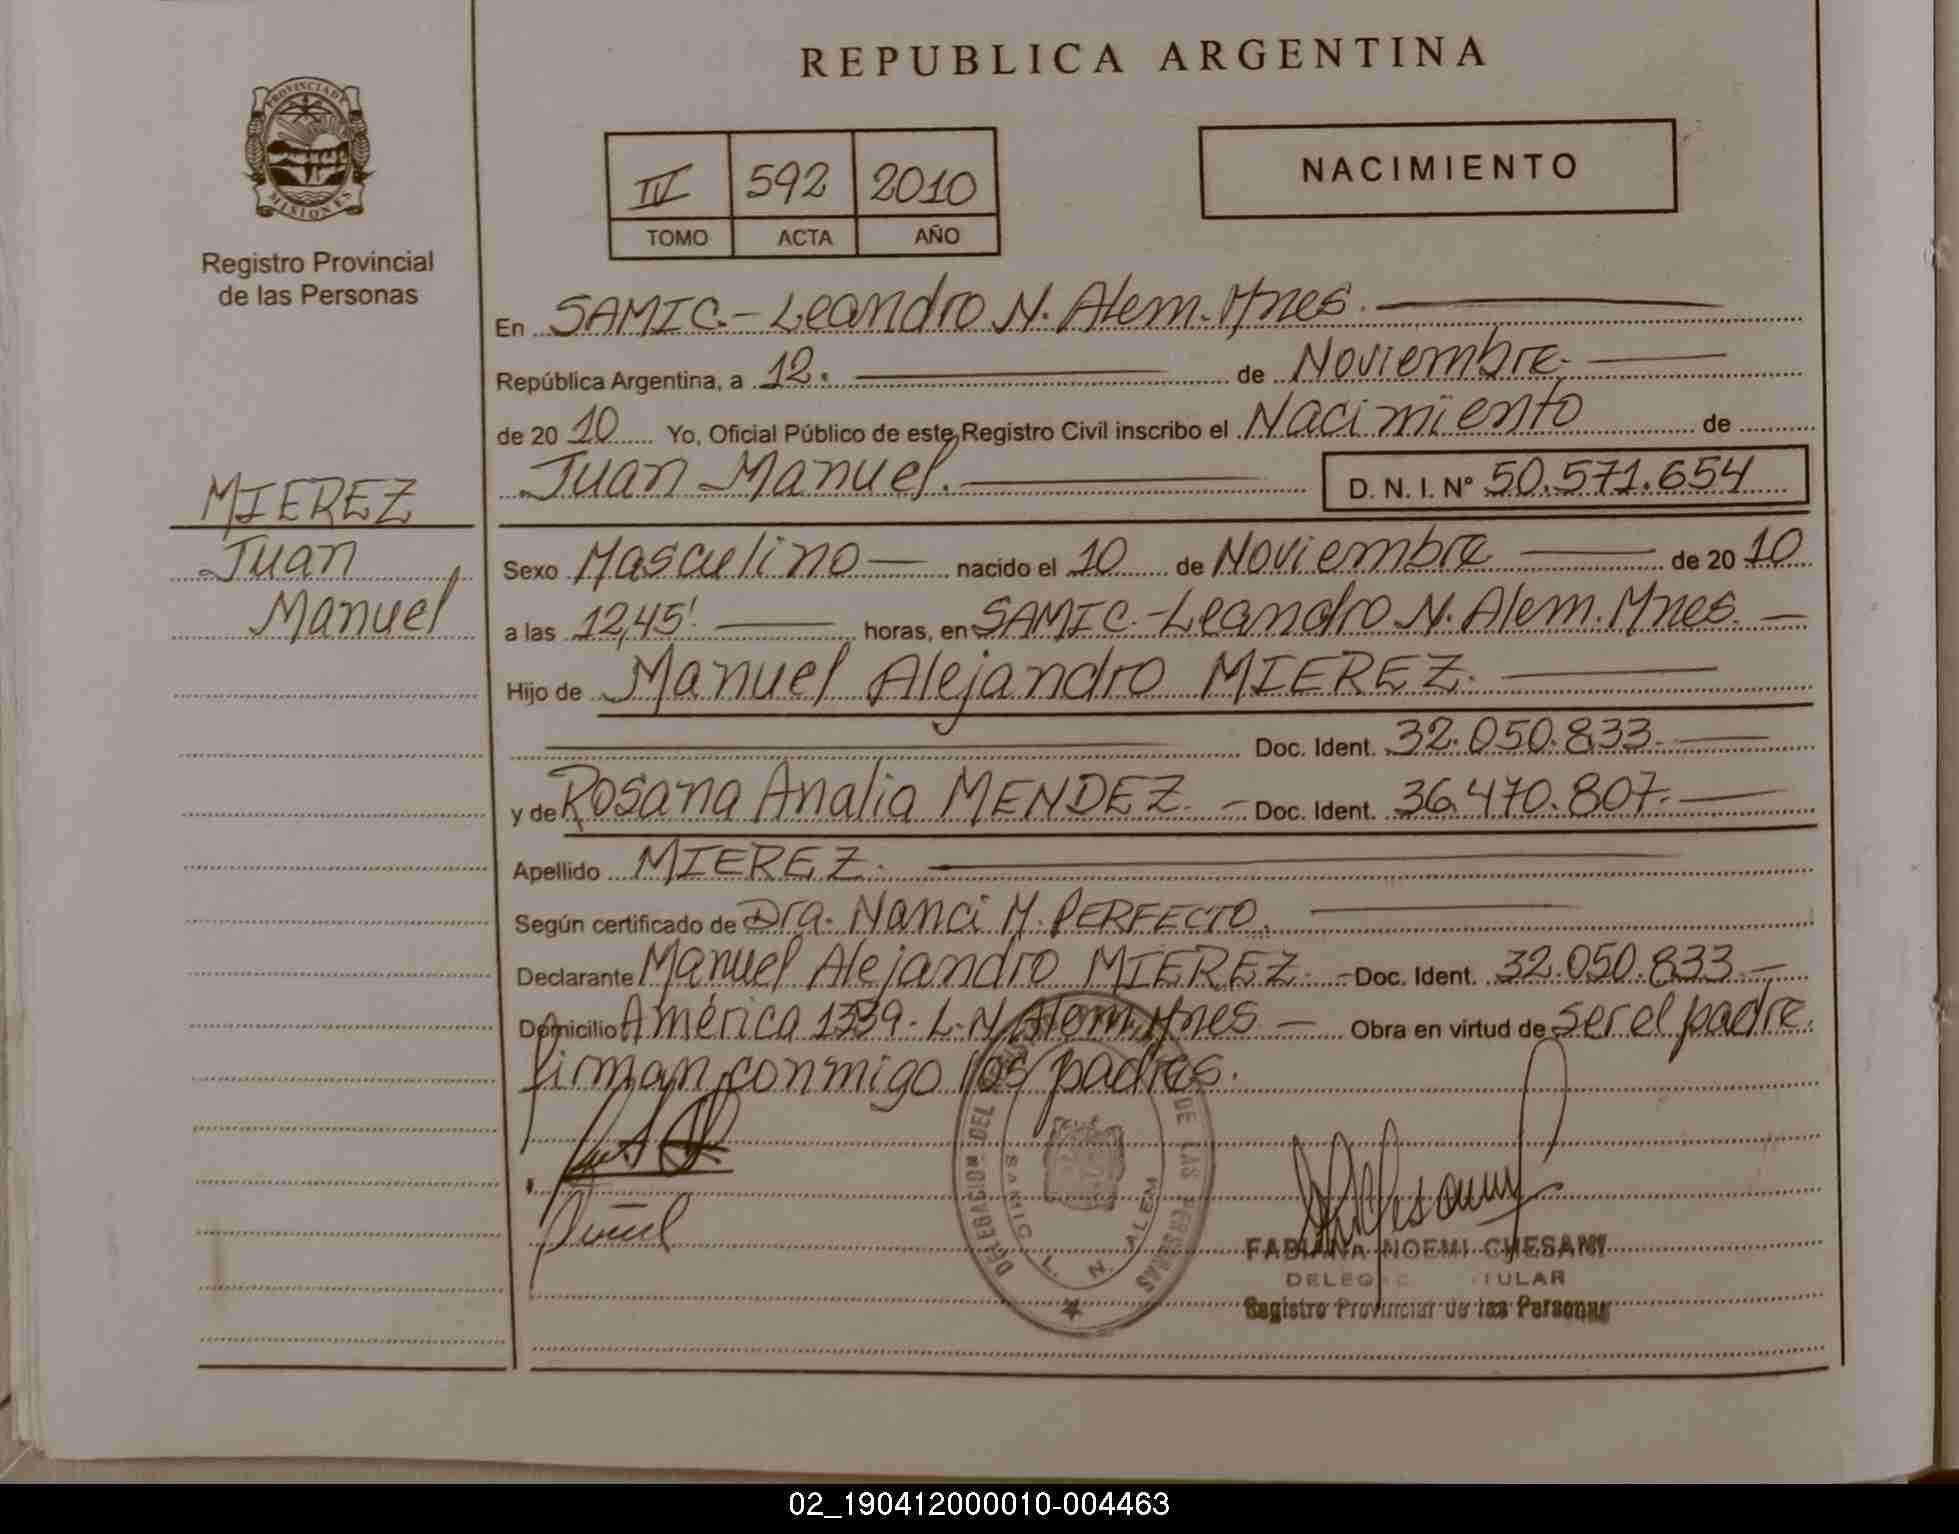 REPUBLICA ARGENTINA
PROVINCIA DE
MISIONES
Registro Provincial
de las Personas
IV 592 2010
TOMO ACTA AÑO
NACIMIENTO
En SAMIC.- Leandro N. Alem. Mnes.
República Argentina, a 12. de Noviembre.
de 20 10 Yo, Oficial Público de este Registro Civil inscribo el Nacimiento de
Juan Manuel. D. N. I. Nº 50.571.654
MIEREZ
Juan
Manuel
Sexo Masculino nacido el 10 de Noviembre de 20 10
a las 12,45' horas, en SAMIC.-Leandro N. Alem. Mnes.
Hijo de Manuel Alejandro MIEREZ.
Doc. Ident. 32.050.833.
y de Rosana Analia MENDEZ. Doc. Ident. 36.470.807.
Apellido MIEREZ.
Según certificado de Dra. Nanci M. PERFECTO.
Declarante Manuel Alejandro MIEREZ. Doc. Ident. 32.050.833.
Domicilio América 1339.- L.N. Alem. Mnes Obra en virtud de ser el padre.
firman conmigo los padres.
DELEGACION DEL DE LAS PERSONAS
SAMIC L. N. ALEM
FABIANA NOEMI CHESANI
Registro Provincial de las Personas
02_190412000010-004463